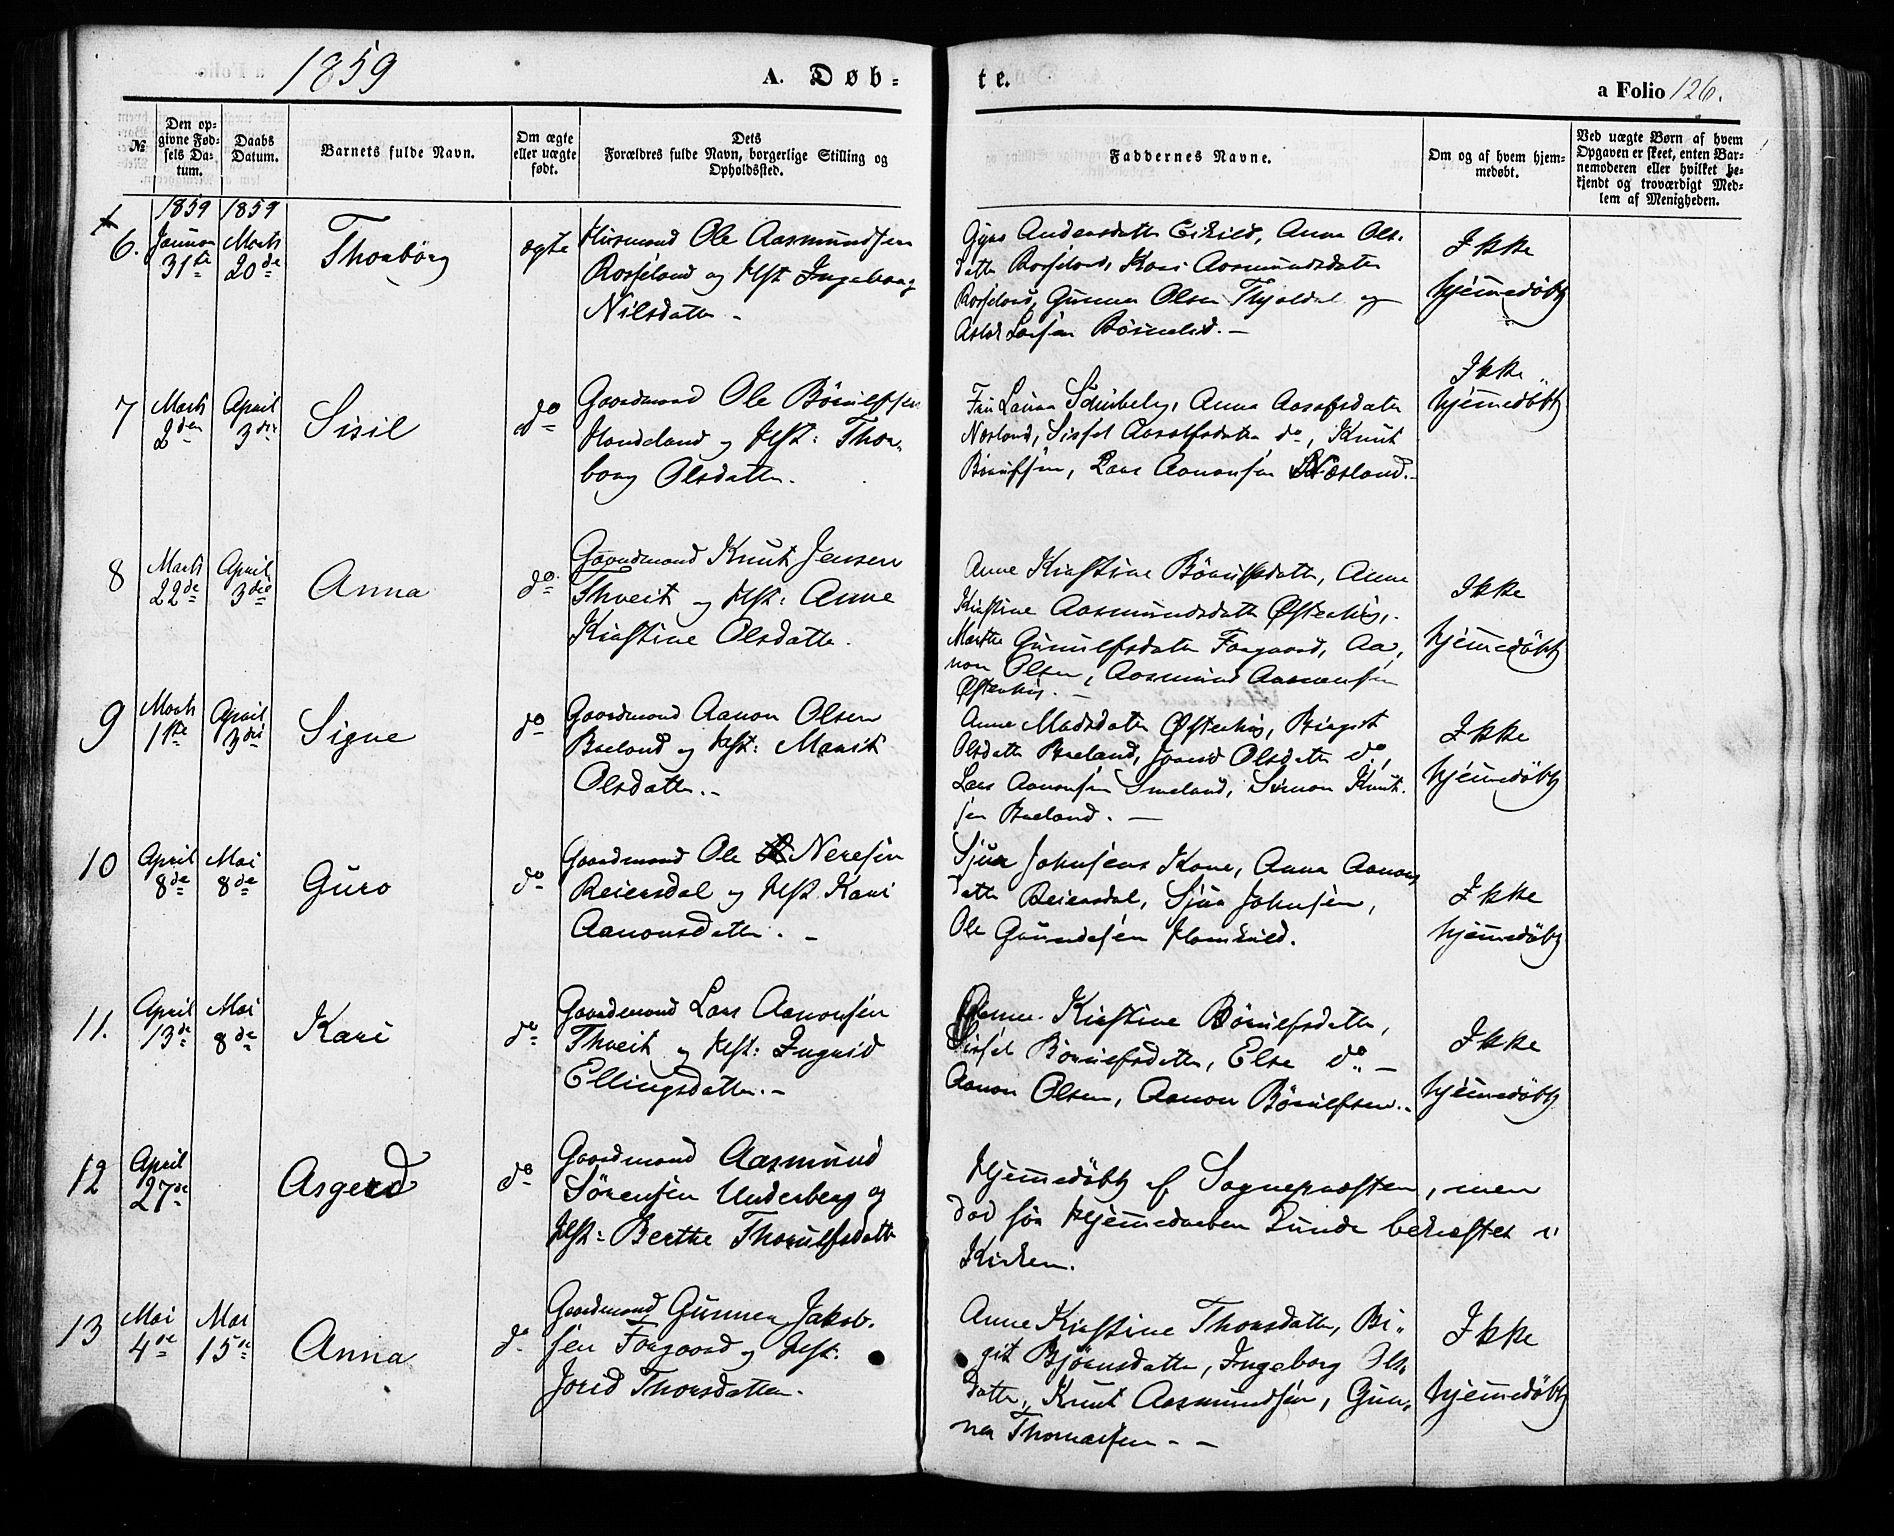 1859
A. Døb-
te.
a Folio 126.
№
Den op-
givne Fød-
sels Da-
tum.
Daabs
Datum.
Barnets fulde Navn.
Om ægte
eller uægte
født.
Dets
Forældres fulde Navn, borgerlige Stilling og
Opholdssted.
Faddernes Navne.
Om og af hvem hjem-
medøbt.
Ved uægte Børn af hvem
Opgaven er skeet, enten Bar-
nemoderen eller hvilket be-
kjendt og troværdigt Med-
lem af Menigheden.
1859 1859
6.
Januar
31te
Marts
20de
Thorbörg
ægte
Husmand Ole Aasmundsen
Rosseland og Hst Ingeborg
Nilsdatter -
Anna Ols-
datter Rosseland, Kari Aasmundsdatter
Rosseland, Gunner Olsen og
Larsen
Ikke
hjemmedöbt
7
Marts
2den
April
3die
Sisil
do
Gaardmand Ole Börulfsen
Haadeland og Hst: Thor-
borg Olsdatter.
Fru Laura Anna Aasulfsdatter
Næsland, Sissel Aasulfsdatter do, Knut
Börulfsen, Lars Aanonsen Næsland.-
Ikke
hjemmedöbt
8
Marts
22de
April
3die
Anna
do
Gaardmand Knut Jensen
Thveit og Hst: Anne
Kirstine Olsdatter.
Anne Kirstine Börulfsdatter, Anne
Kirstine Aasmundsdatter Østerhus,
Marthe Gunulfsdatter Forgaard, Aa-
non Olsen, Aasmund Aanonsen
Østerhus. -
Ikke
hjemmedöbt
9
Marts
1ste
April
3die
Signe
do
Gaardmand Aanon Olsen
Breland og Hst: Marit
Olsdatter. -
Anne Madsdatter Østerhus, Birgit
Olsdatter Breland, Jorid Olsdatter do,
Lars Aanonsen Smeland, Simon Knut-
sen Breland. -
Ikke
hjemmedöbt
10
April
8de
Mai
8de
Guro
do
Gaardmand Ole Neresen
Reiersdal og Hst Kari
Aanonsdatter. -
Sjur Johnsens Kone, Anna Aanons
datter Reiersdal, Sjur Johnsen,
Ole
Ikke
hjemmedöbt
11.
April
13de
Mai
8de
Kari
do
Gaardmand Lars Aanonsen
Thveit og Hst: Ingrid
Ellingsdatter. -
Anne Kirstine Börulfsdatter,
Sissel Börulfsdatter, Else do. -
Aanon Olsen, Aanon Börulfsen. -
Ikke
hjemmedöbt
12
April
27de
Asgerd
do
Gaardmand Aasmund
Sörensen Underberg og
Hst: Berthe Thorulfsdatter
Hjemmedöbt af Sognepræsten, men
död för Hjemmedaaben kunde bekræftes i
Kirken.
13
Mai
4de
Mai
15de
Anna
do
Gaardmand Gunner Jakob-
sen Forgaard og Hst:
Jorid Thorsdatter.
Anne Kirstine Thorsdatter, Bi-
git Björnsdatter, Ingeborg Ols-
datter, Knut Aasmundsen, Gun-
ner Thomassen - -
Ikke
hjemmedöbt